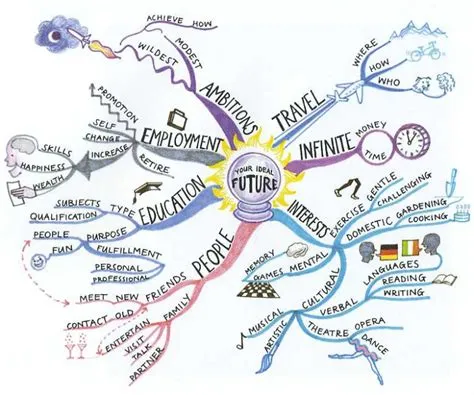 YOUR IDEAL
FUTURE
AMBITIONS
MODEST
WILDEST
ACHIEVE HOW
TRAVEL
WHERE
HOW
WHO
INFINITE
MONEY
TIME
INTERESTS
EXERCISE
GENTLE
CHALLENGING
DOMESTIC
GARDENING
COOKING
MENTAL
MEMORY
GAMES
CULTURAL
VERBAL
LANGUAGES
READING
WRITING
THEATRE
OPERA
DANCE
MUSICAL
ARTISTIC
PEOPLE
FRIENDS
MEET NEW
CONTACT OLD
FAMILY
ENTERTAIN
VISIT
TALK
PARTNER
EDUCATION
TYPE
SUBJECTS
QUALIFICATION
PURPOSE
PEOPLE
FUN
FULFILLMENT
PERSONAL
PROFESSIONAL
EMPLOYMENT
PROMOTION
SELF
CHANGE
INCREASE
SKILLS
HAPPINESS
WEALTH
RETIRE